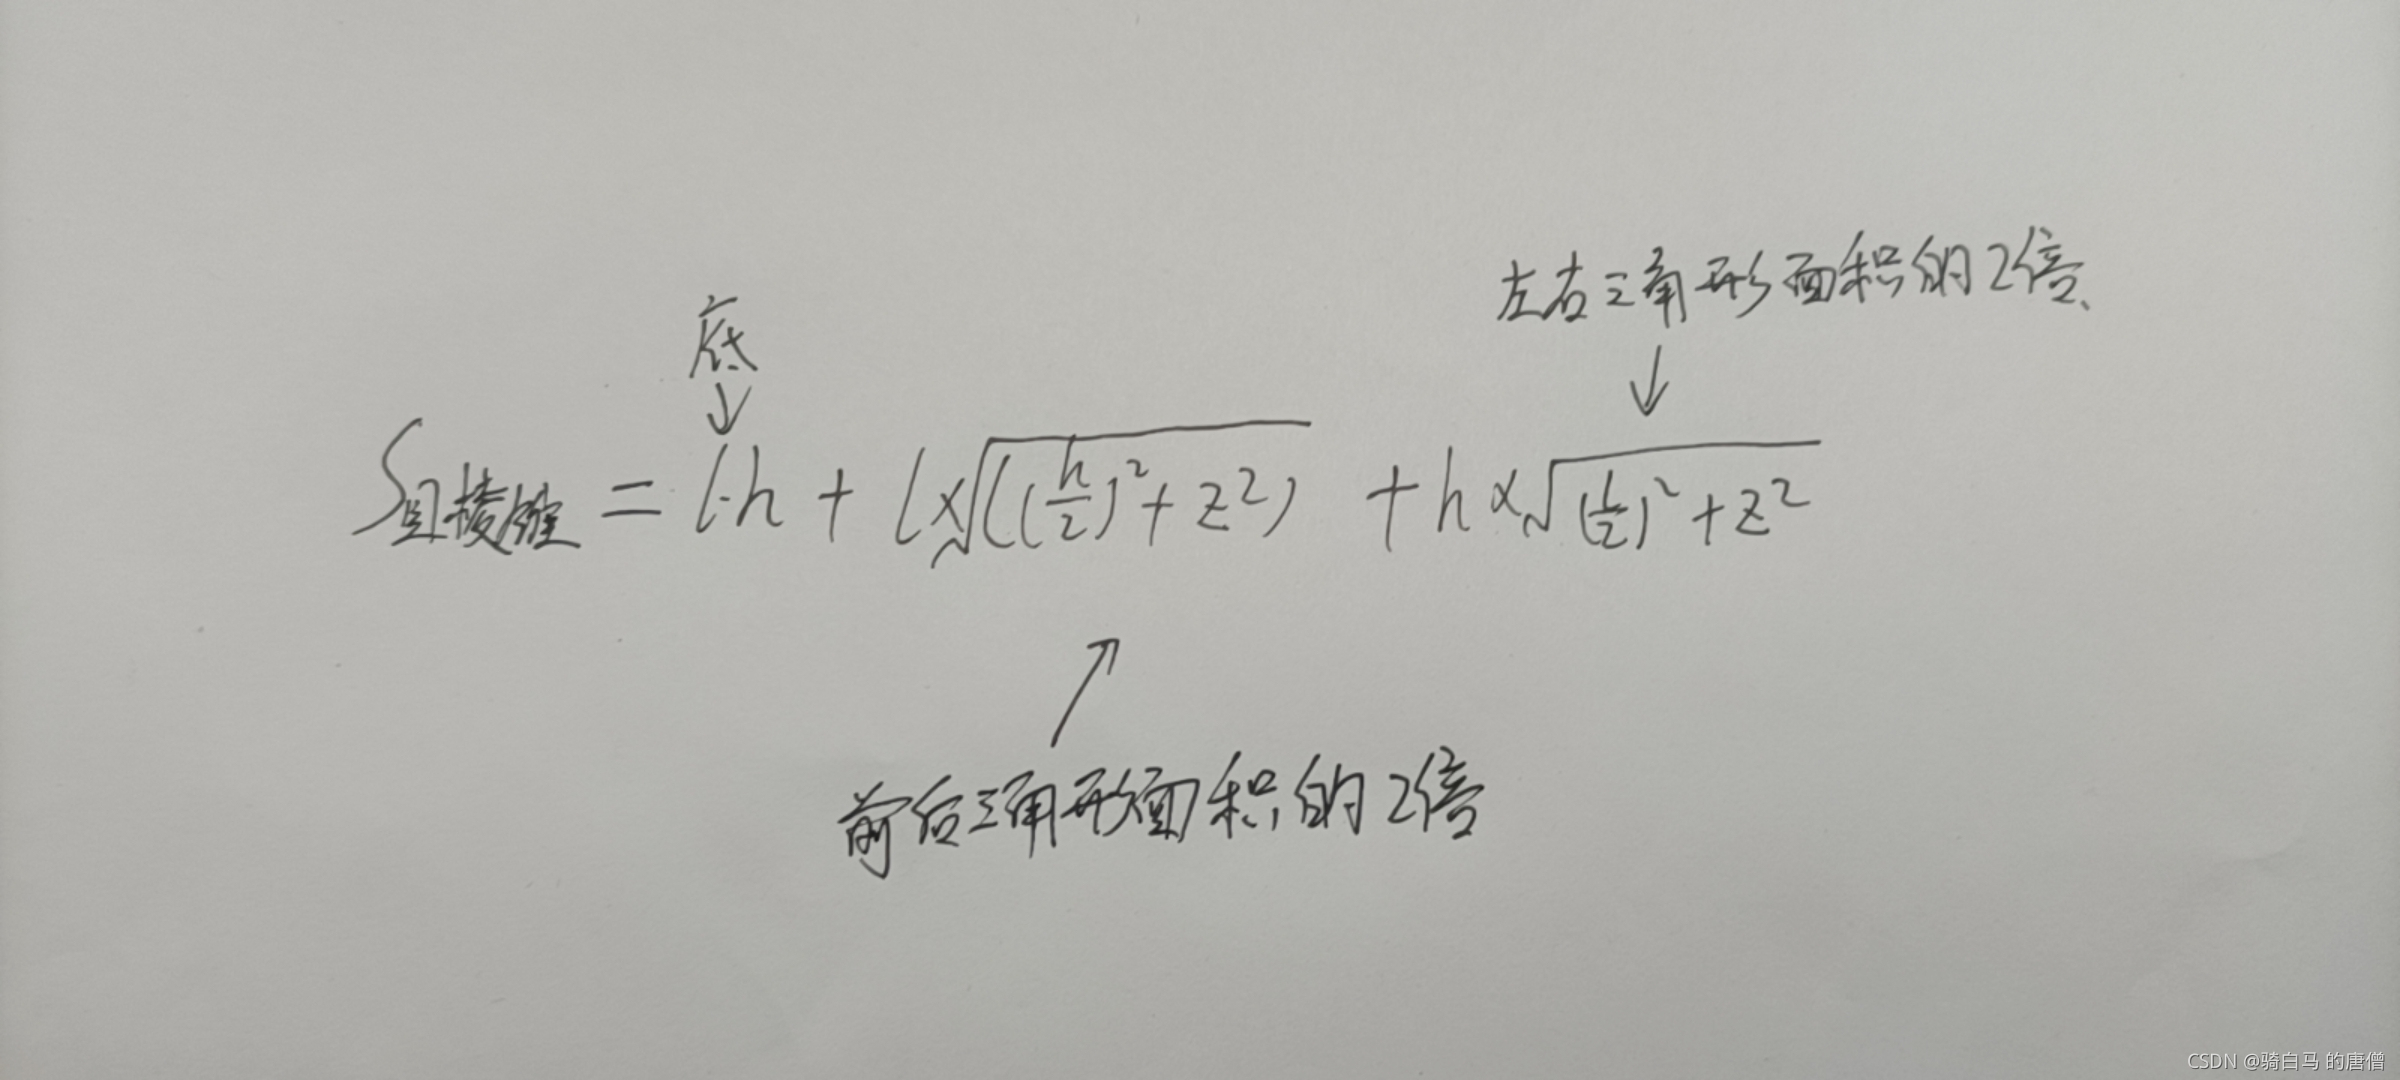 左右三角形面积的2倍
底
S且棱锥 = l·h + l×√((h/2)²+z²) + h×√(l/2)²+z²
前后三角形面积的2倍
CSDN @骑白马 的唐僧